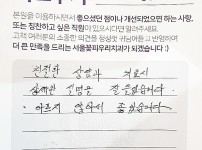 본원을 이용하시면서 좋으셨던 점이나 개선되었으면 하는 사항,
또는 칭찬하고 싶은 직원이 있으시다면 알려주세요.
고객 여러분의 소중한 의견을 정성껏 귀담아듣고 반영하여
더 큰 만족을 드리는 서울꽃피우리치과가 되겠습니다 :)
친절한 상담과 치료시
설명을 잘 들었습니다
아프지 않아서 좋았습니다